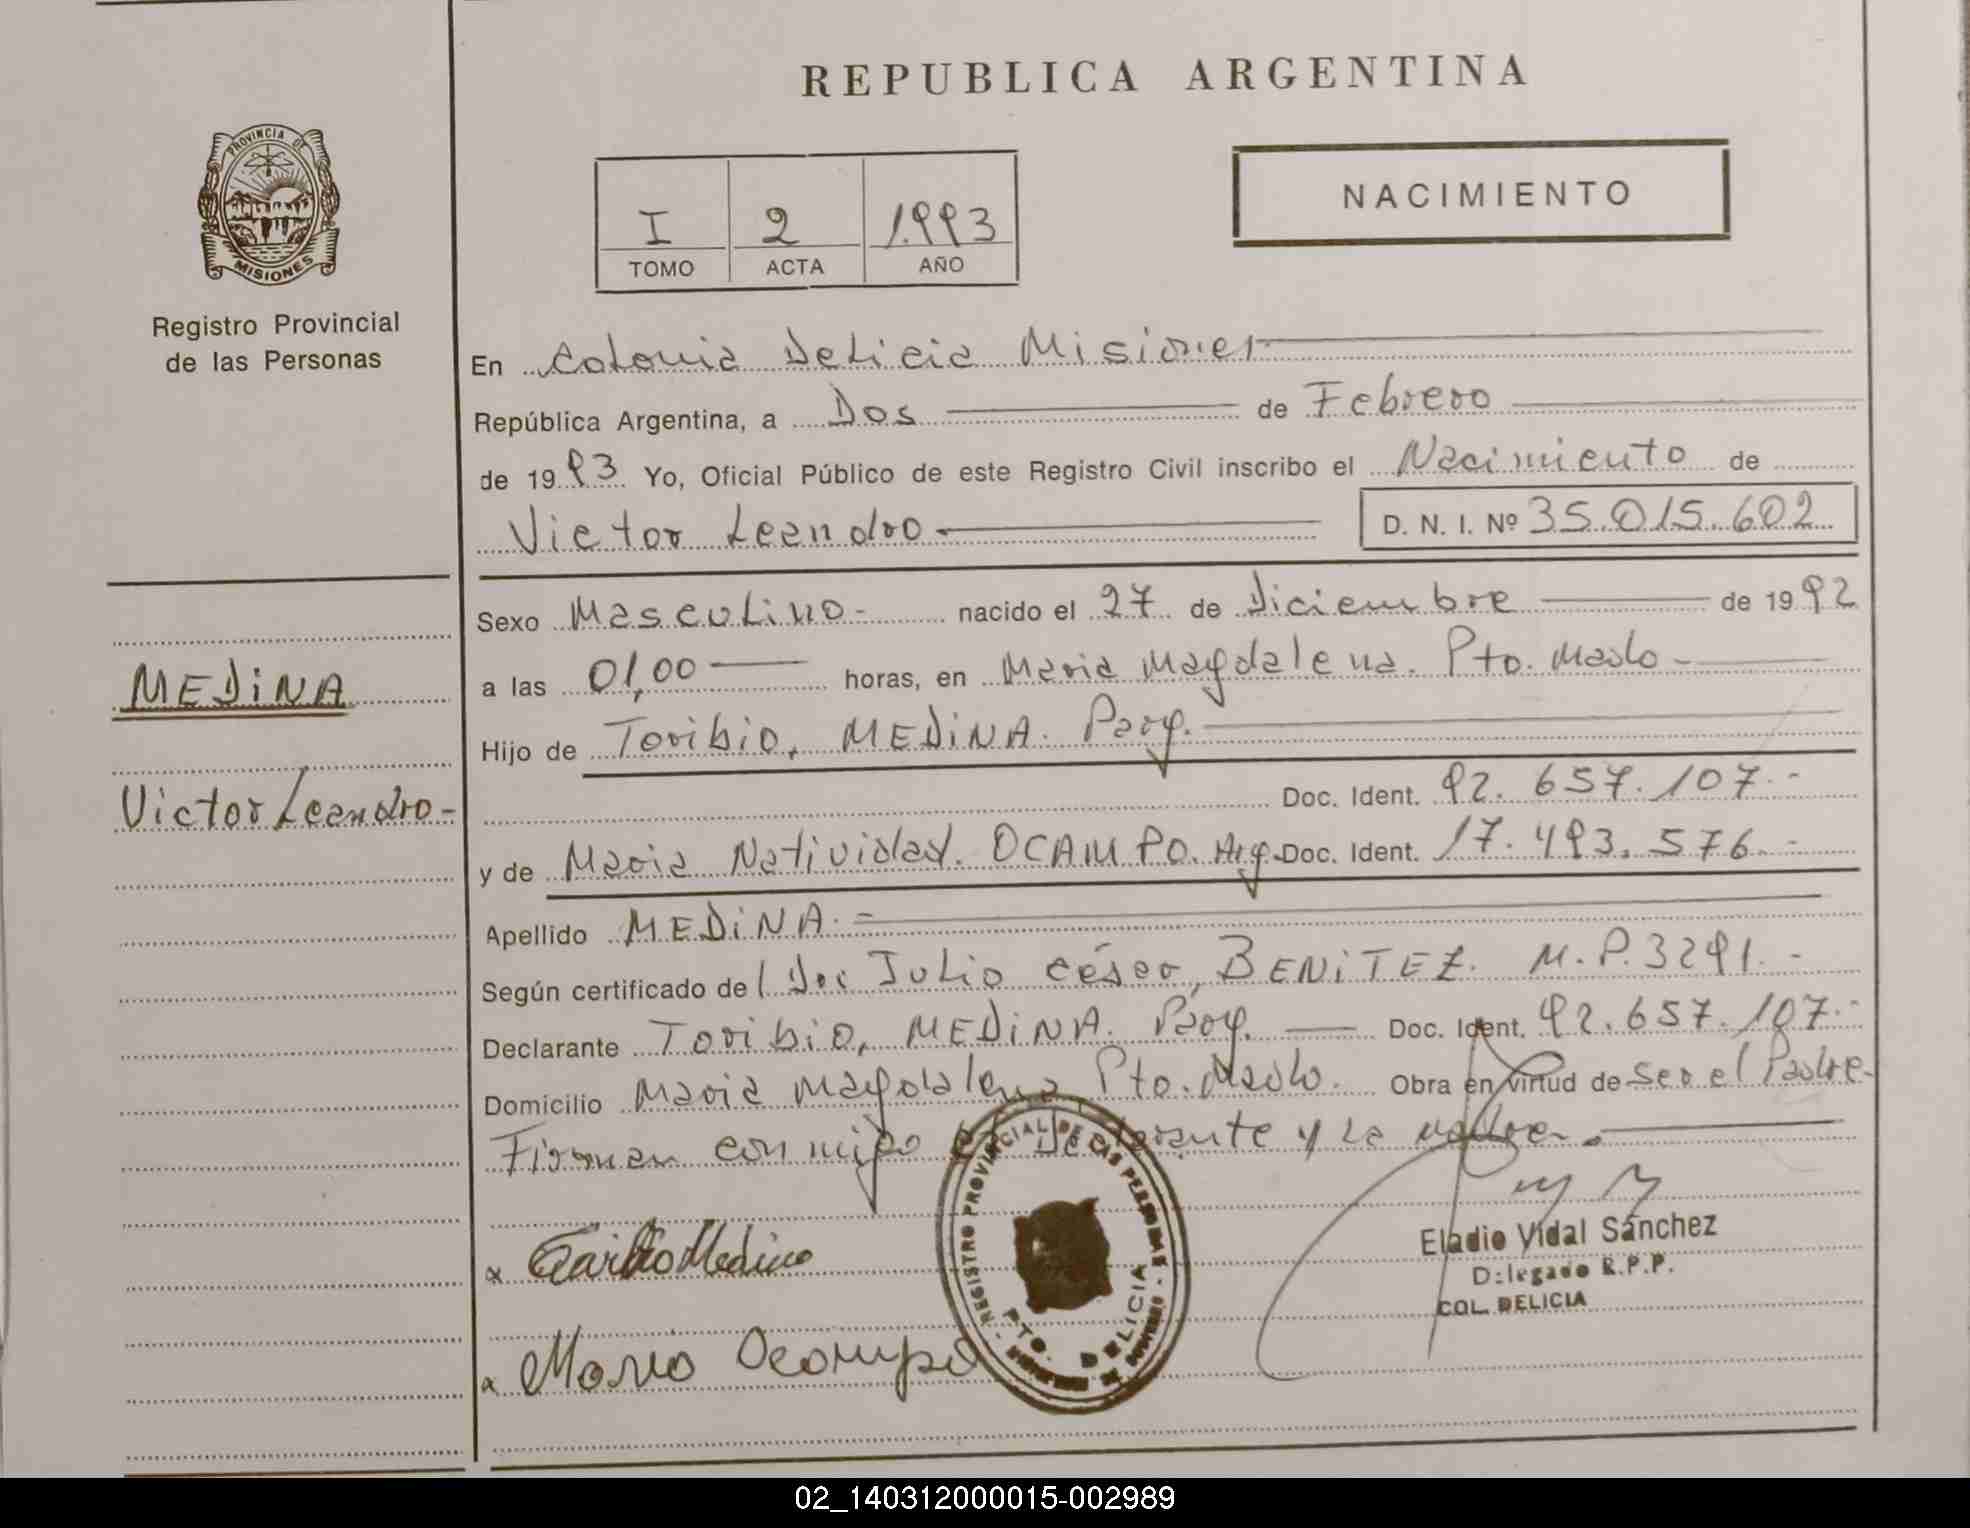 REPUBLICA ARGENTINA
PROVINCIA DE
MISIONES
Registro Provincial
de las Personas
I 2 1.993
TOMO ACTA AÑO
NACIMIENTO
En Colonia Delicia Misiones
República Argentina, a Dos de Febrero
de 1993 Yo, Oficial Público de este Registro Civil inscribo el Nacimiento de
Victor Leandro D. N. I. Nº 35.015.602
Sexo Masculino nacido el 27 de Diciembre de 1992
a las 01,00 horas, en Maria Magdalena. Pto. Mado
Hijo de Toribio, MEDiNA. Parg.
Doc. Ident. 92.657.107.-
y de Maria Natividad. OCAMPO. Arg. Doc. Ident. 17.493.576.-
Apellido MEDiNA.-
Según certificado del Doc Julio César, BENiTEZ. M.P.3291.-
Declarante Toribio, MEDiNA. Parg. Doc. Ident. 92.657.107.-
Domicilio Maria Magdalena Pto. Mado. Obra en virtud de Ser el Padre.
Firman conmigo el Declarante y la Madre.
MEDiNA
Victor Leandro-
x Toribio Medina
x Maria Ocampo
REGISTRO PROVINCIAL DE LAS PERSONAS
PTO. DELICIA
Eladio Vidal Sánchez
Delegado R.P.P.
COL. DELICIA
02_140312000015-002989